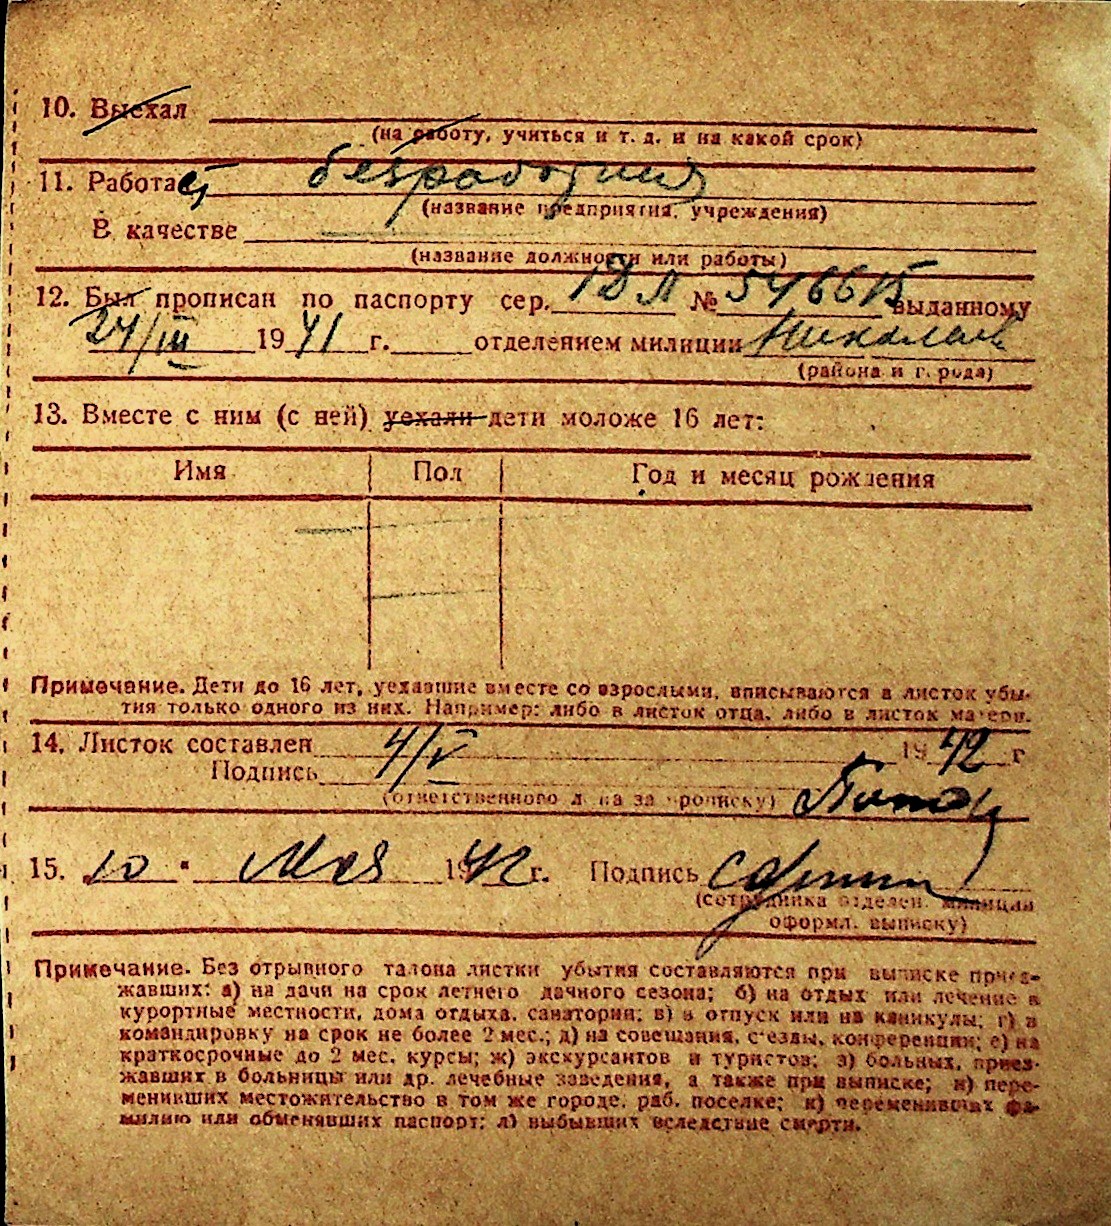 10. Выехал
(на работу, учиться и т. д. и на какой срок)
11. Работает безработный
(название предприятия, учреждения)
В качестве
(название должности или работы)
12. Был прописан по паспорту сер. № выданному
24/III 1941 г. отделением милиции
(района и города)
13. Вместе с ним (с ней) уехали дети моложе 16 лет:
Имя Пол Год и месяц рождения
Примечание. Дети до 16 лет, уехавшие вместе со взрослыми, вписываются в листок убы-
тия только одного из них. Например: либо в листок отца, либо в листок матери.
14. Листок составлен 4/V 1942 г
Подпись
(ответственного лица за прописку)
15. 10 " Мая 1942 г. Подпись
(сотрудника отделен. милиции
оформл. выписку)
Примечание. Без отрывного талона листки убытия составляются при выписке приез-
жавших: а) на дачи на срок летнего дачного сезона; б) на отдых или лечение в
курортные местности, дома отдыха, санатории; в) в отпуск или на каникулы; г) в
командировку на срок не более 2 мес.; д) на совещания, съезды, конференции; е) на
краткосрочные до 2 мес. курсы; ж) экскурсантов и туристов; з) больных, приез-
жавших в больницы или др. лечебные заведения, а также при выписке; и) пере-
менивших местожительство в том же городе, раб. поселке; к) переменивших фа-
милию или обменявших паспорт; л) выбывших вследствие смерти.